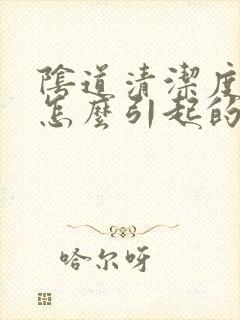 陰道清潔度
怎麼引起的
哈尔呀